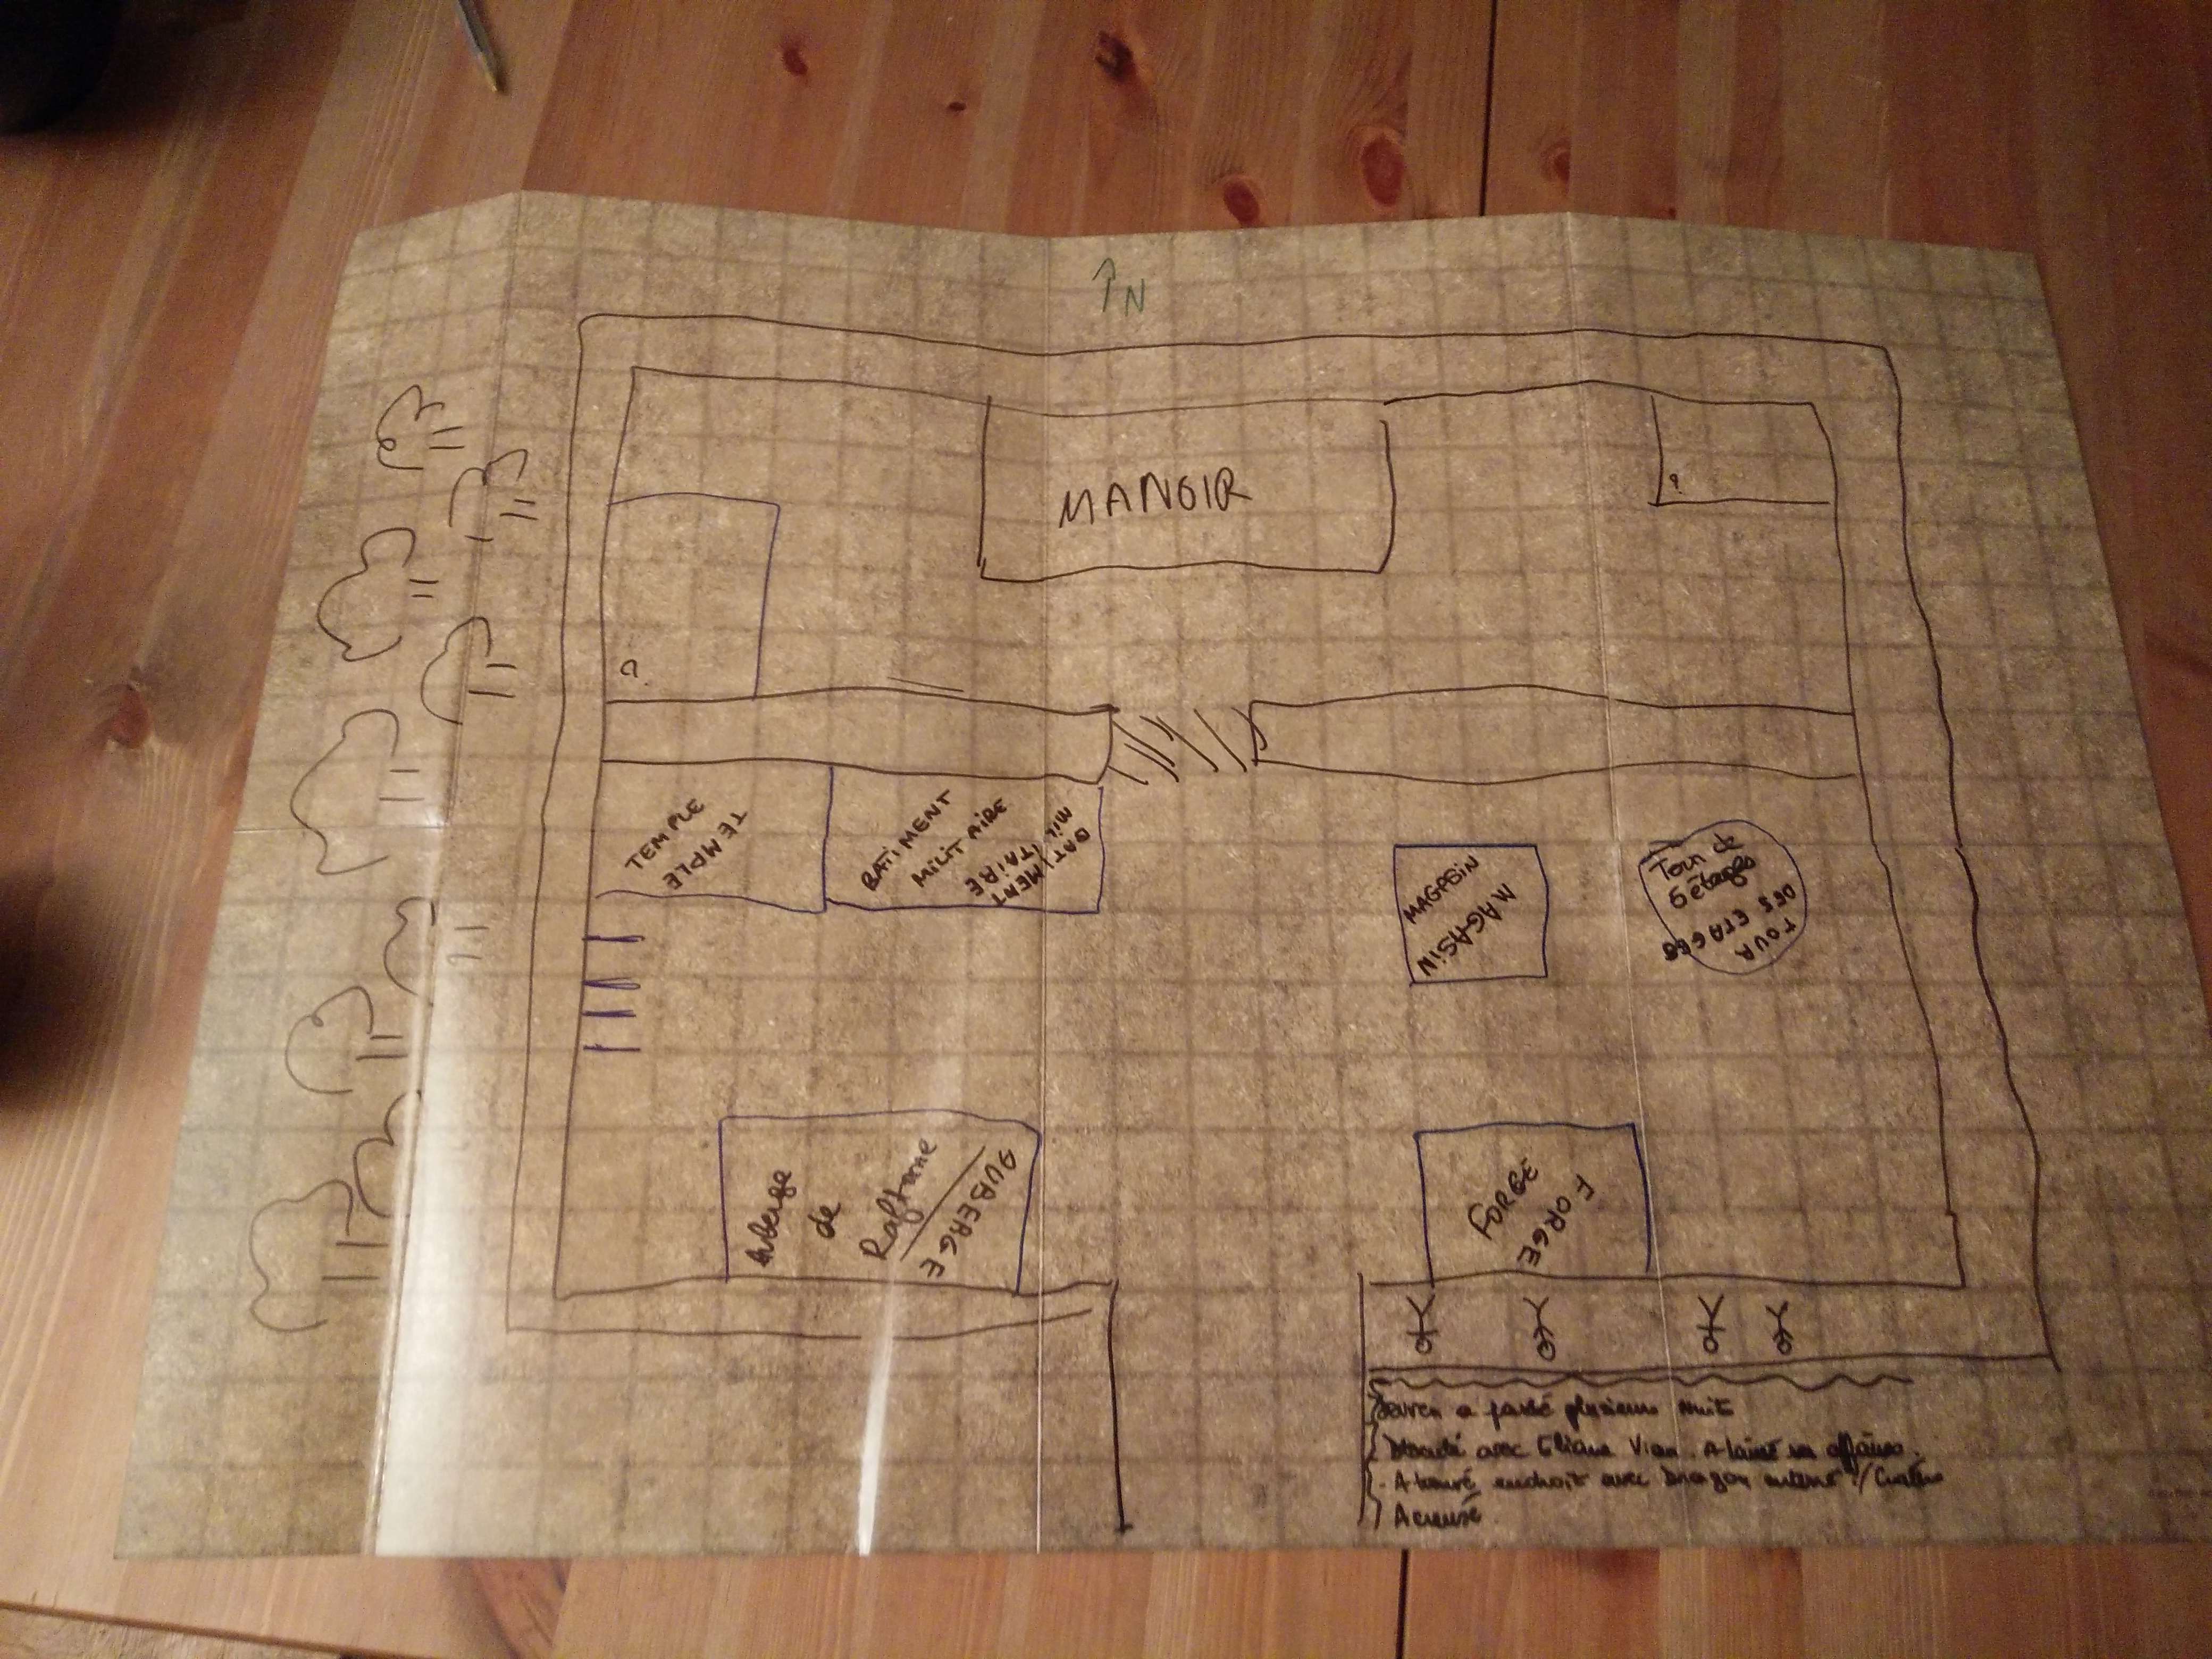 N
MANOIR
?
?
TEMPLE
TEMPLE
BATIMENT
MILITAIRE
BATIMENT
MILITAIRE
MAGASIN
MAGASIN
Tour de
5 étages
TOUR
DES ETAGES
Auberge
de
Raftane
AUBERGE
FORGE
FORGE
a passé plusieurs nuit
avec Eliane Vian. A laissé ses affaires.
. A trouvé endroit avec Dragon
A creusé.